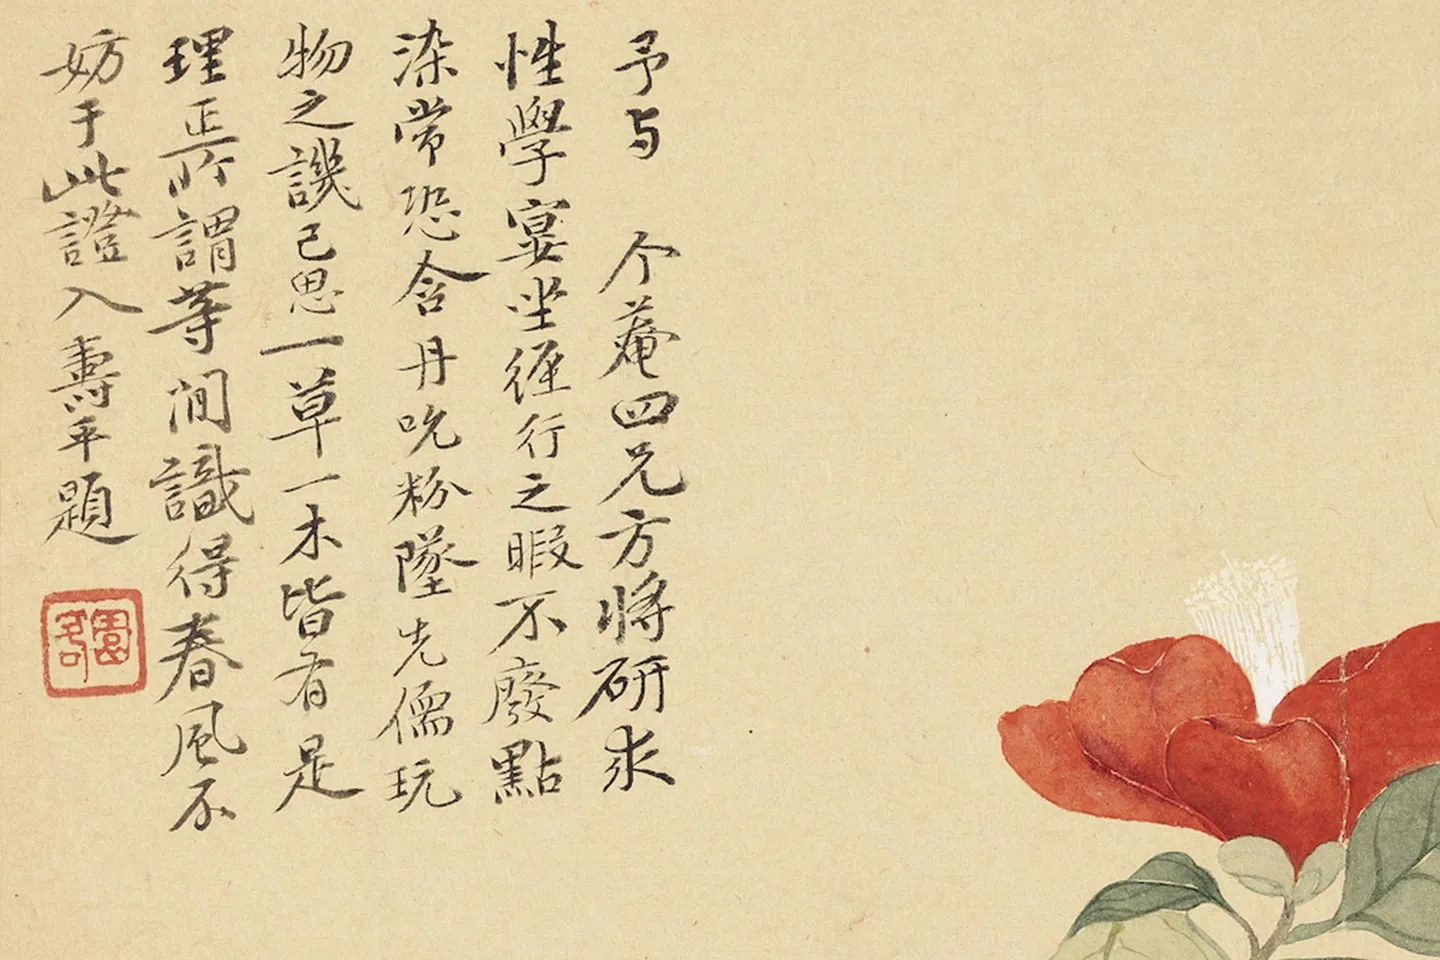 予与 个菴四兄方将研求
性學宴坐徑行之暇不廢點
染常恐含丹吮粉墜先儒玩
物之譏已思一草一木皆有是
理焉所謂等閒識得春風不
妨于此證入壽平題
園客